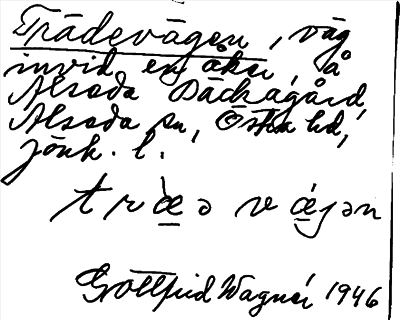 Trädevägen, väg
invid en åker, å
Alseda Backagård,
Alseda sn, Östra hd,
Jönk. l.
træ̀ə vǽjən
Gottfrid Wagnér 1946